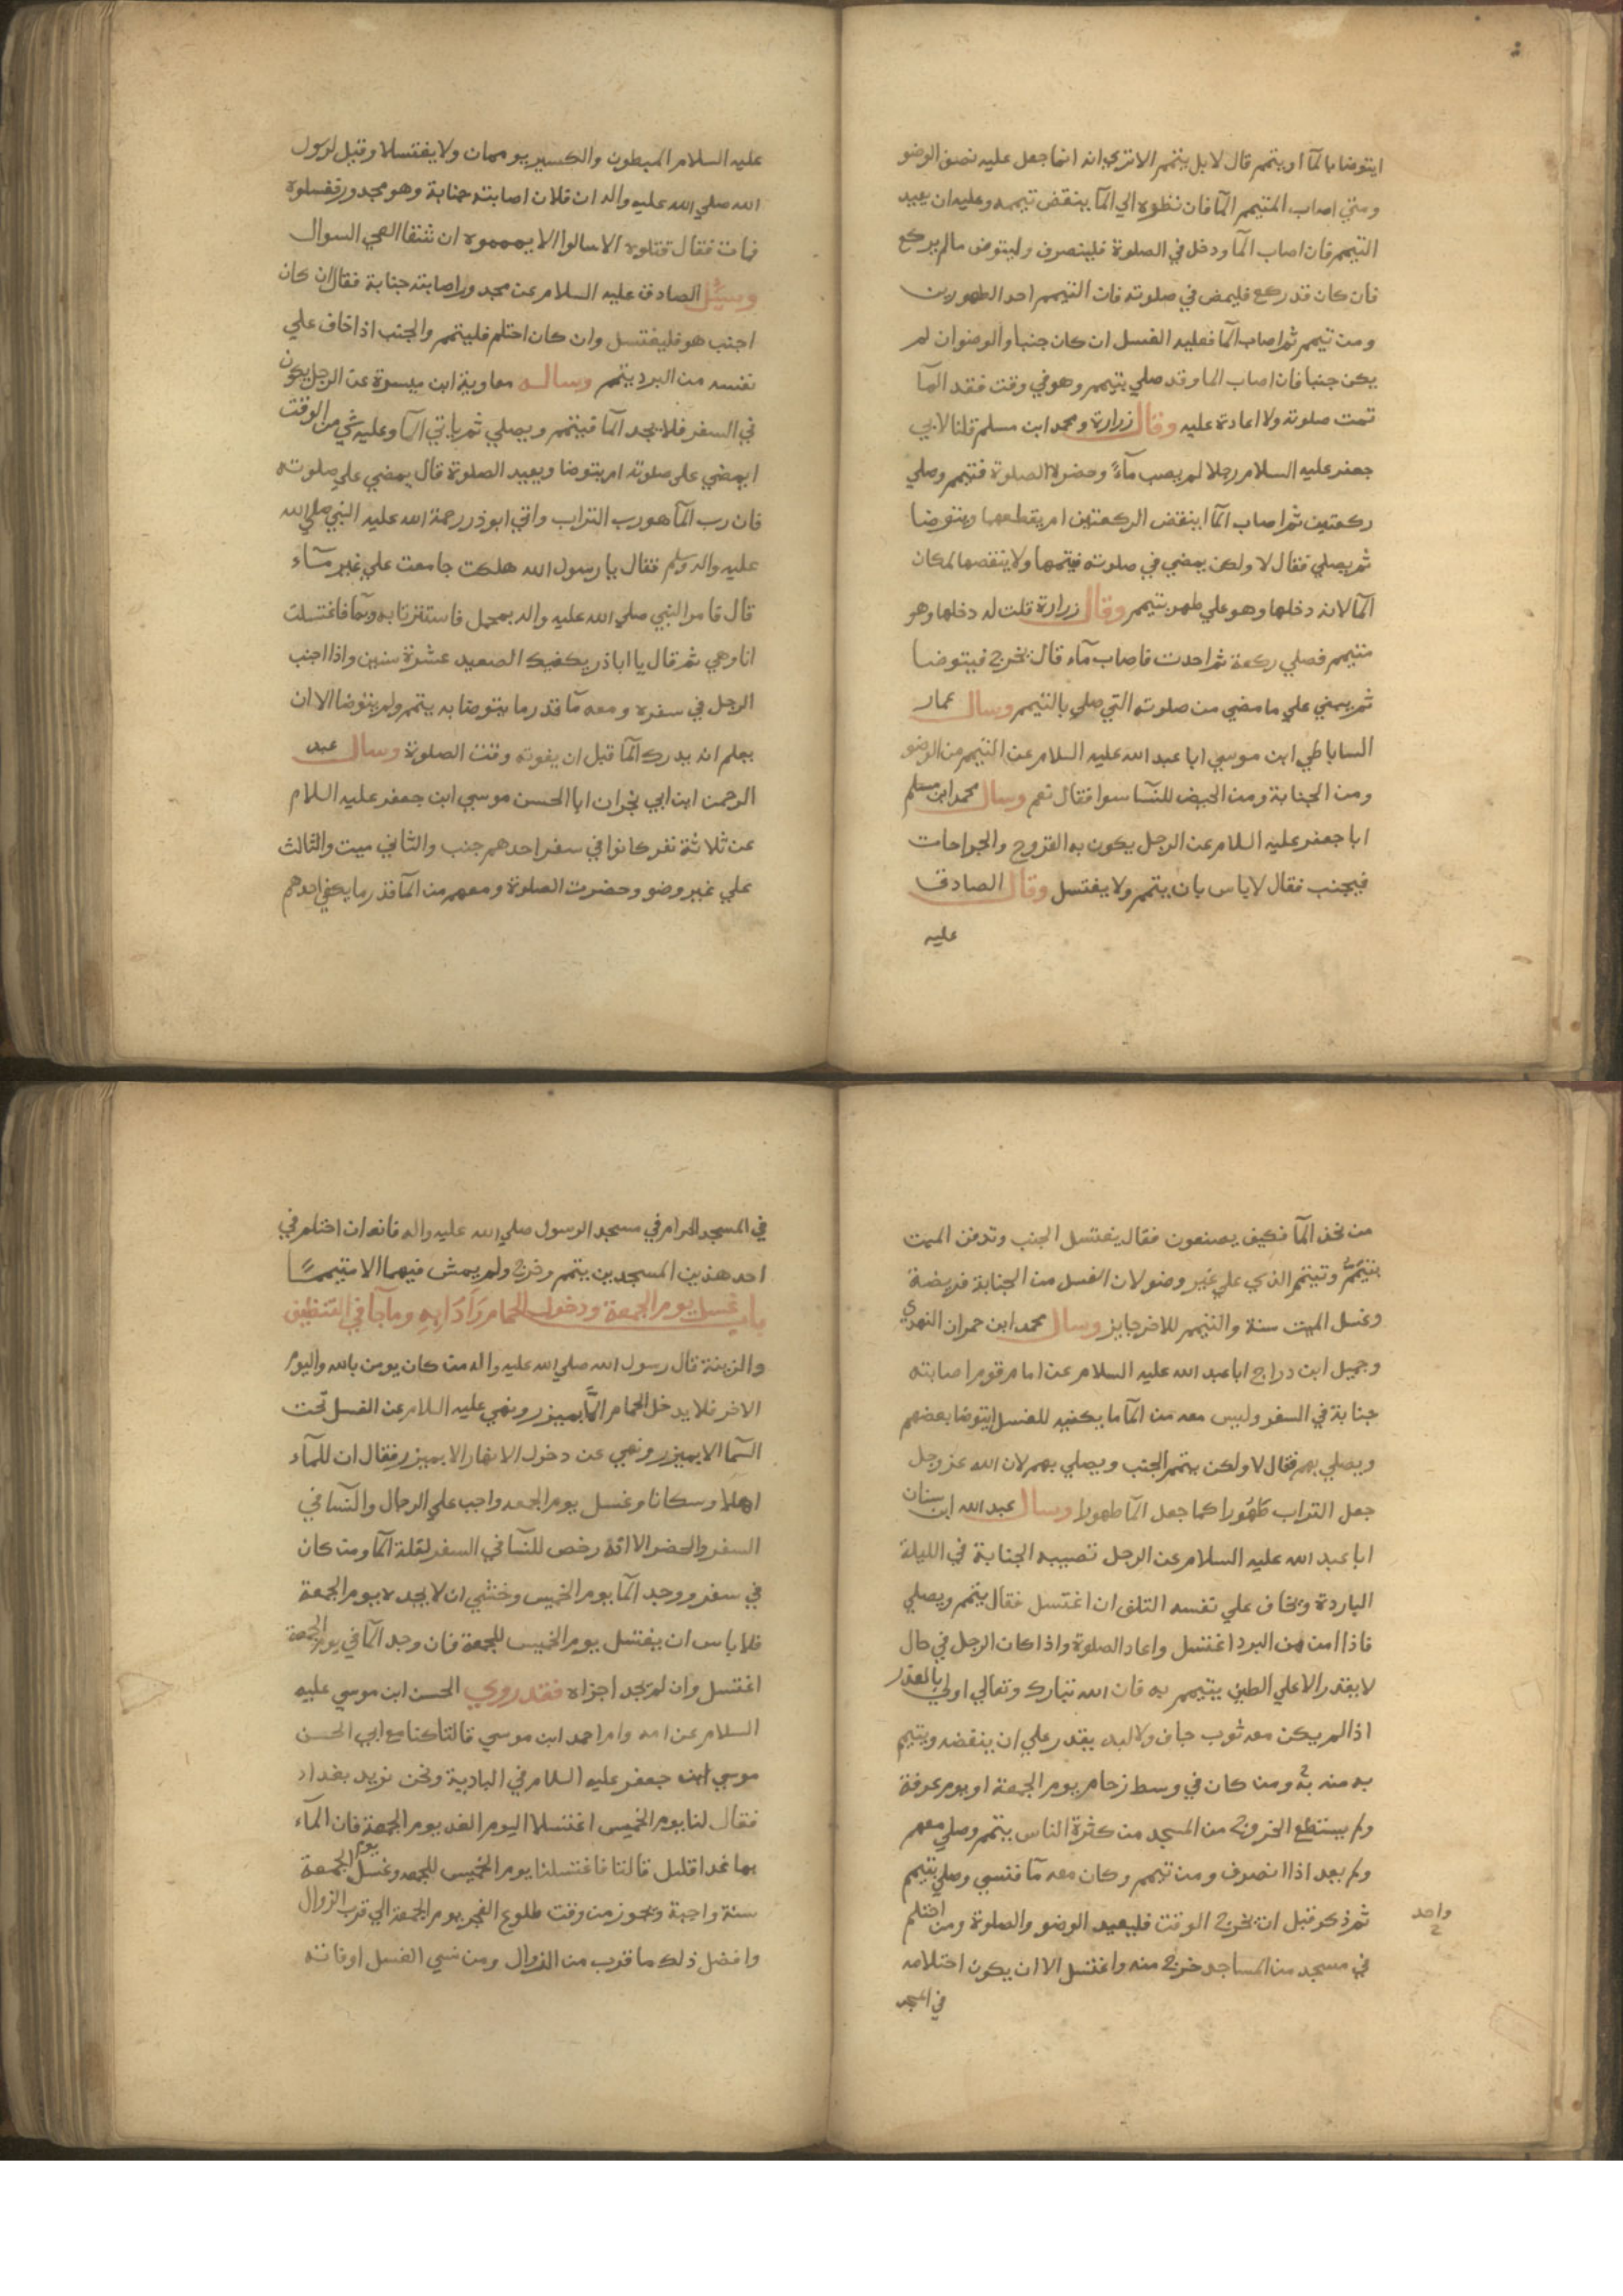 ايتوضا بالمآ او يتيمم قال لا بل يتيمم الا تري انه انما جعل عليه نصف الوضو
ومتي اصاب المتيمم المآ فان نظره الي المآ ينقض تيممه وعليه ان يعيد
التيمم فان اصاب المآ ودخل في الصلوة فلينصرف وليتوض ما لم يركع
فان كان قد ركع فليمض في صلوته فان التيمم احد الطهورين
ومن تيمم ثم اصاب المآ فعليه الغسل ان كان جنبا والوضو ان لم
يكن جنبا فان اصاب الما وقد صلي بتيمم وهو في وقت فقد المآ
تمت صلوته ولا اعادة عليه وقال زرارة ومحمد ابن مسلم قلنا لابي
جعفر عليه السلام رجلا لم يصب مآءً وحضره الصلوة فتيمم وصلي
ركعتين ثم اصاب المآ اينقض الركعتين ام يقطعهما ويتوضا
ثم يصلي فقال لا ولكن يمضي في صلوته فيتمها ولا ينقضها لمكان
المآ لانه دخلها وهو علي طهر بتيمم وقال زرارة قلت له دخلها وهو
متيمم فصلي ركعة ثم احدث فاصاب مآء قال يخرج فيتوضا
ثم يبني علي ما مضي من صلوته التي صلي بالتيمم وسال عمار
الساباطي ابن موسي ابا عبد الله عليه السلام عن التيمم من الوضو
ومن الجنابة ومن الحيض للنسآ سوا فقال نعم وسال محمد ابن مسلم
ابا جعفر عليه السلام عن الرجل يكون به القروح والجراحات
فيجنب فقال لا باس بان يتيمم ولا يغتسل وقال الصادق
عليه
عليه السلام المبطون والكسير يوممان ولا يغتسلا وقيل لرسول
الله صلي الله عليه واله ان فلان اصابته جنابة وهو مجدور فغسلوه
فمات فقال قتلوه الا سالوا الا يمموه ان شفا العي السوال
وسئل الصادق عليه السلام عن مجدور اصابته جنابة فقال ان كان
اجنب هو فليغتسل وان كان احتلم فليتيمم والجنب اذا خاف علي
نفسه من البرد يتيمم وساله معاوية ابن ميسرة عن الرجل يكون
في السفر فلا يجد المآ فيتيمم ويصلي ثم ياتي المآ وعليه شي من الوقت
ايمضي علي صلوته ام يتوضا ويعيد الصلوة قال يمضي علي صلوته
فان رب المآ هو رب التراب واتي ابوذر رحمة الله عليه النبي صلي الله
عليه واله وسلم فقال يا رسول الله هلكت جامعت علي غير مآء
قال فامر النبي صلي الله عليه واله بمحمل فاستترنا به وبمآ فاغتسلت
انا وهي ثم قال يا اباذر يكفيك الصعيد عشرة سنين واذا اجنب
الرجل في سفره ومعه مآ قدر ما يتوضا به يتيمم ولم يتوضا الا ان
يعلم انه يدرك المآ قبل ان يفوته وقت الصلوة وسال عبد
الرحمن ابن ابي نجران ابا الحسن موسي ابن جعفر عليه السلام
عن ثلاثة نفر كانوا في سفر احدهم جنب والثاني ميت والثالث
علي غير وضو وحضرت الصلوة ومعهم من المآ قدر ما يكفي احدهم
من يخذ المآ فكيف يصنعون فقال يغتسل الجنب وتدفن الميت
بتيممٍ وتيتمم الذي علي غير وضو لان الغسل من الجنابة فريضة
وغسل الميت سنة والتيمم للاخر جايز وسال محمد ابن حمران النهدي
وجميل ابن دراج ابا عبد الله عليه السلام عن امام قوم اصابته
جنابة في السفر وليس معه من المآ ما يكفيه للغسل ايتوضا بعضهم
ويصلي بهم فقال لا ولكن يتيمم الجنب ويصلي بهم لان الله عز وجل
جعل التراب طَهُورا كما جعل المآ طهورا وسال عبد الله ابن سنان
ابا عبد الله عليه السلام عن الرجل تصيبه الجنابة في الليلة
الباردة ويخاف علي نفسه التلف ان اغتسل فقال يتيمم ويصلي
فاذا امن من البرد اغتسل واعاد الصلوة واذا كان الرجل في حال
لا يقدر الا علي الطين يتيمم به فان الله تبارك وتعالي اولي بالعذر
اذا لم يكن معه ثوب جاف ولا لبد يقدر علي ان ينفضه ويتيمم
به منه ومن كان في وسط زحام يوم الجمعة او يوم عرفة
ولم يستطع الخروج من المسجد من كثرة الناس يتيمم وصلي معهم
ولم يعد اذا انصرف ومن تيمم وكان معه مآ فنسي وصلي بتيمم
ثم ذكر قبل ان يخرج الوقت فليعيد الوضو والصلوة ومن احتلم
في مسجد من المساجد خرج منه واغتسل الا ان يكون احتلامه
في المسجد
واحد
في المسجد الحرام في مسجد الرسول صلي الله عليه واله فانه ان احتلم في
احد هذين المسجدين يتمم وخرج ولم يمش فيهما الا متيممًا
باب غسل يوم الجمعة ودخول الحمام وَآدَابِهِ وما جآ في التنظيف
والزينة قال رسول الله صلي الله عليه واله من كان يومن بالله واليوم
الاخر فلا يدخل الحمام الا بميزر ونهي عليه السلام عن الغسل تحت
السمآ الا بميزر ونهي عن دخول الانهار الا بميزر فقال ان للمآء
اهلا وسكانا وغسل يوم الجمعه واجب علي الرجال والنسآ في
السفر والحضر الا انه رخص للنسآ في السفر لقلة المآ ومن كان
في سفر ووجد المآ يوم الخميس وخشي ان لا يجده يوم الجمعة
فلا باس ان يغتسل يوم الخميس للجمعة فان وجد المآ في يوم الجمعة
اغتسل وان لم يجد اجزاه فقد روي الحسن ابن موسي عليه
السلام عن امه وام احمد ابن موسي قالتا كنا مع ابي الحسن
موسي ابن جعفر عليه السلام في البادية ونحن نريد بغداد
فقال لنا يوم الخميس اغتسلا اليوم الغد يوم الجمعة فان المآء
بها غدا قليل قالتا فاغتسلنا يوم الخميس للجمعه وغسل يوم الجمعة
سنة واجبة وتجوز من وقت طلوع الفجر يوم الجمعة الي قرب الزوال
وافضل ذلك ما قرب من الزوال ومن نسي الغسل او فاته